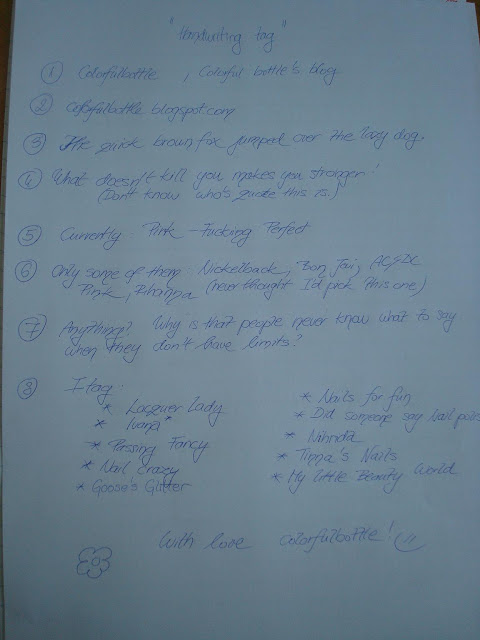 "Handwriting tag"
① Colorfulbottle , Colorful bottle's blog
② colorfulbottle.blogspot.com
③ The quick brown fox jumped over the lazy dog.
④ What doesn't kill you makes you stronger!
(Don't know who's quote this is.)
⑤ Currently: Pink - Fucking Perfect
⑥ Only some of them: Nickelback, Bon Jovi, AC/DC
Pink, Rihanna (never thought I'd pick this one)
⑦ Anything? Why is that people never know what to say
when they don't have limits?
⑧ I tag:
* Lacquer Lady
* Ivana*
* Passing Fancy
* Nail crazy
* Goose's Glitter
* Nails for fun
* Did someone say nail
* Nihrida
* Tinna's Nails
* My little Beauty World
With love colorfulbottle!